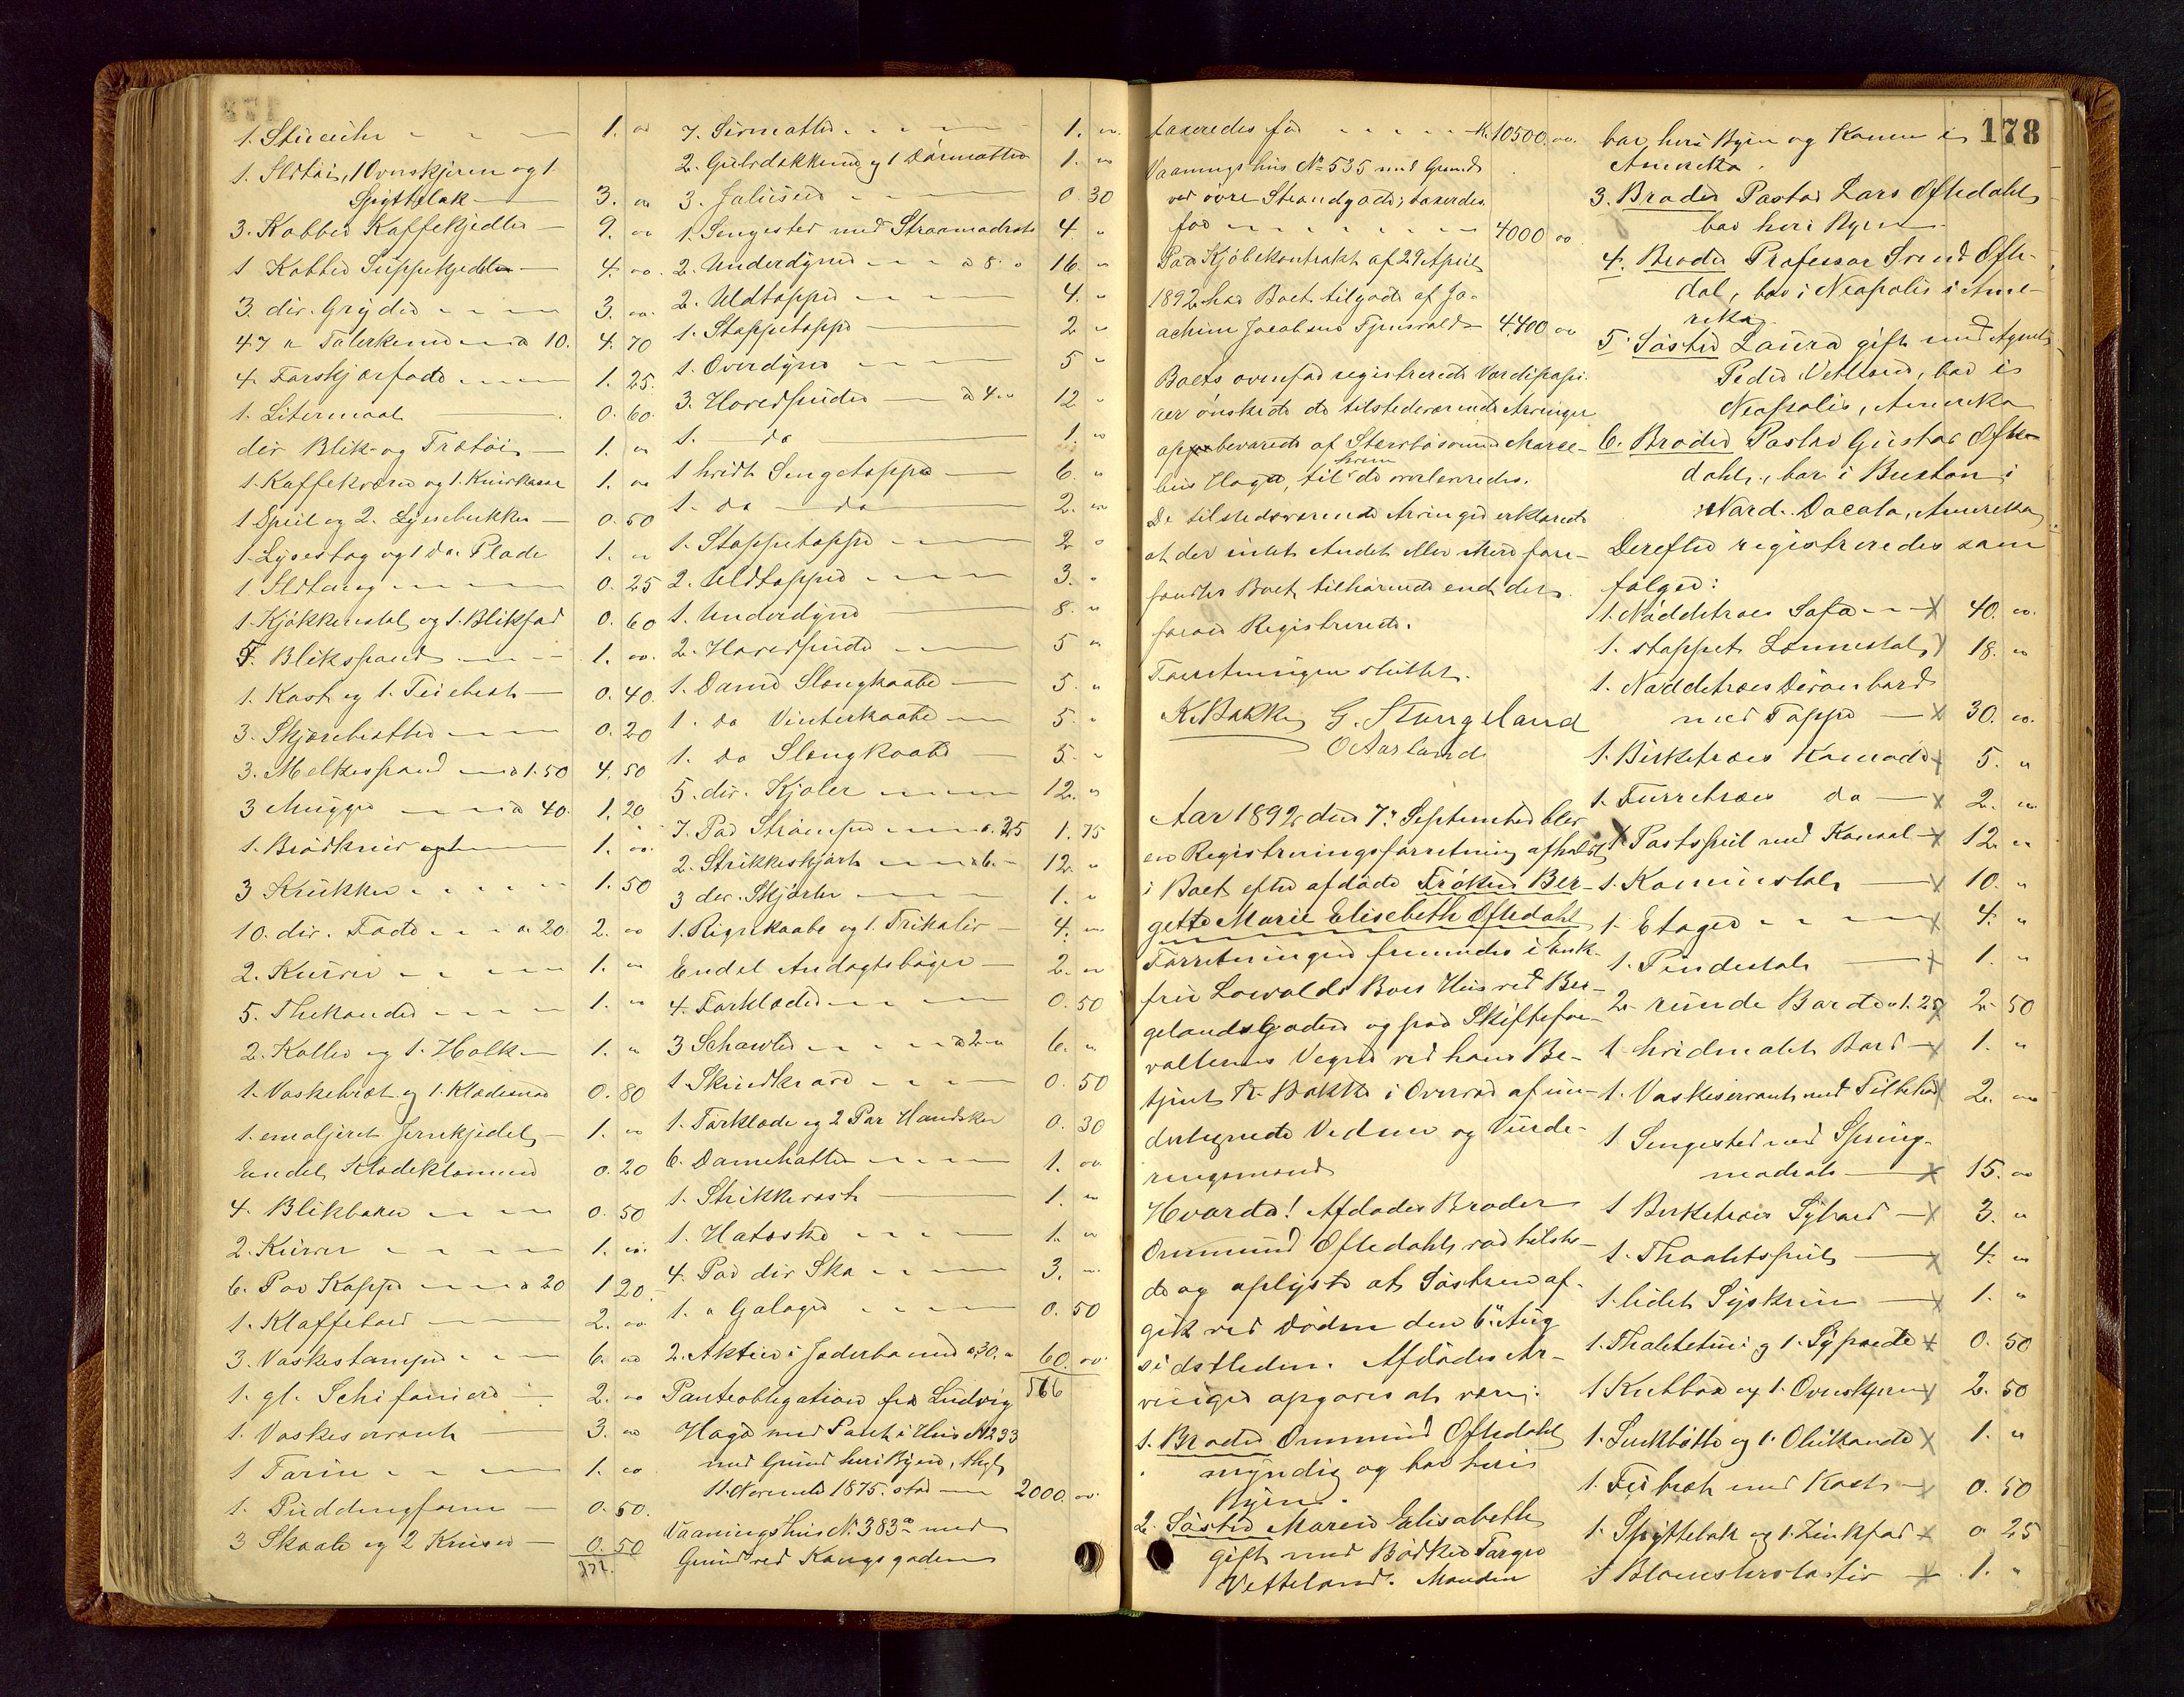 1. Stueuhr 1. oo
1. Ildtöi, 1 Ovnskjerm og 1
Spyttbak 3. oo
3. Kobber Kaffekjedler 9. oo
1 Kobber Suppekjedel 4. oo.
3. div. Gryder 3. oo.
47 " Talerkener a 10. 4. 70
4. Forskjærfade 1. 25.
1. Litermaal 0. 60.
div Blik- og Trætöi 1. oo
1. Kaffekværn og 1. Knivkasse 1. oo
1 Speil og 2. Lysebukker 0. 50
1. Lysestag og 1 do. Plade 1. oo
1 Ildtang 0. 25
1. Kjökkenstol og 1. Blikfad 0. 60
5. Blikspand 1. oo.
1. Kost og 1. Feiebret 0. 40.
3. Skjærebrætter 0. 20
3. Melkespand a 1. 50 4. 50
3 Mugger a 40. 1. 20
1. Brödkniv 1. oo.
3 Krukker 1. 50
10. div. Fade a 20 2. oo
2. Kurver 1. oo
5. Thekander 1. oo
2. Koller og 1. Holk 1. oo
1. Vaskebræt og 1. Klædesnor 0. 80
1. emaljeret Jernkjedel 1. oo
Endel Klædeklemmer 0. 20
4. Blikboxer 0. 50
2. Kurver 1. oo.
6. Par Kopper a 20 1 20.
1. Klaffebord 2. oo.
3. Vaskestamper 6. oo
1. gl. Schifonier 2. oo
1. Vaskeservant 3. oo
1 Tarin 1. oo
1. Puddingform 0. 50.
3 Skaale og 2 Kniver 0. 50
7. Sivmatter 1. oo.
2. Gulvdækkener og 1 Dörmatte 1. oo
3. Jalusier 0 30
1. Sengested med Straamadrats 4. "
2. Underdyner a 8. " 16. "
2. Uldtepper 4. "
1. Stoppeteppe 2 "
1. Overdyne 5 "
3. Hovedpuder a 4. " 12 "
1. do 1. oo
1 hvidt Sengeteppe 6. "
1. do do 2. oo
1. Stoppeteppe 2 "
2. Uldtepper 3. "
1. Underdyne 8. "
2. Hovedpuder 5 "
1. Dame Slængkaabe 5. "
1. do Vinterkaabe 5. "
1. do Slængkaabe 5. "
5. div. Kjoler 12. "
7. Par Strömper a. 25 1. 75
2. Strikkeskjört a 6. 12. "
3 div. Skjörter 1. "
1. Regnkaabe og 1. Trikoliv 4. oo
Endel Andagtsböger 2. oo
4. Forklæder 0. 50
3 Schawler a 2. " 6. "
1. Skindkrave 0. 50
1. Forklæde og 2 Par Handsker 0. 30
6. Damehatter 1. oo
1. Strikkevest 1. "
1. Hatæske 1. oo
4. Par div Sko 3. "
1. " Galoger 0. 50
2. Aktier i Jæderbanen a 30. " 60. oo.
Panteobligation fra Ludvig 566
Haga med Pant i Hus No 233
med Grund her i Byen, thgl.
11. Novembr 1875. stor 2000 oo.
Vaaningshus No. 383 a med
Grund ved Kongsgaden
178
taxeredes for Kr. 10500. oo.
Vaaningshus No 535 med Grund
ved övre Strandgade, taxerdes
for 4000 oo
Paa Kjöbekontrakt af 29 April
1892 har Boet tilgode af Jo-
achim Jacobsens Tjensvold 4400 oo
Boets ovenfor registrerede Værdipapi-
rer önskede de tilstedeværende Arvinger
opbevarede af Stervbösönnen Marse-
lius Haga, til hvem de overleveredes.
De tilstedeværende Arvinger erklærede
at der intet Andet eller Mere fore-
fandtes Boet tilhörende end det
foran Registrerede.
Forretningen sluttet.
K. Bakke G. Stangeland
O Aarland
Aar 1892 den 7de September blev
en Registreringsforretning afholdt
i Boet efter afdöde Fröken Ber-
gette Marie Elisebeth Oftedahl
Forretningen fremmedes i Enk-
frue Lovalds Boes Hus ved Ber-
gelandsgaden og paa Skiftefor-
valterens Vegne ved hans Be-
tjent K. Bakke i Overvær af un-
dertegnede Vidner og Vurde-
ringsmænd
Hvorda! Afdödes Broder
Ommund Oftedahl var tilste-
de og oplyste at Söstren af-
gik ved Döden den 6te Aug
sidstleden. Afdödes Ar-
vinger opgaves at være:
1. Broder Ommund Oftedahl
myndig og bor her i
Byen.
2. Söster Maren Elisabeth
gift med Bödker Torger
Vetteland. Manden
bor her i Byen og Konen i
Amerika.
3. Broder Pastor Lars Oftedahl
bor her i Byen
4. Broder Professor Svend Ofte-
dal, bor i Neapolis i Ame-
rika
5. Söster Laura gift med Agent
Peder Vetland, bor i
Neapolis, Amerika
6. Broder Pastor Gustav Ofte-
dahl, bor i Buxton i
Nord. Dacota, Amerika
Derefter registreredes som
fölger:
1. Nöddetræes Sofa 40. oo.
1. stoppet Lænestol 18. oo
1. Nöddetræes Divanbord
med Teppe 30. oo.
1. Birketræes Komode 5. "
1. Furretræes do 2. oo
1 Postspeil med Konsol 12. oo
1. Kaminstol 10. "
1. Etager 4. "
1. Pindestol 1. "
2. runde Borde a 1. 25 2. 50
1 hvidmalet Bord 1. "
1. Vaskeservant med Tilbehör 2. oo
1 Sengested med Spring-
madrats 15. oo
1 Birketræes Sybord 3. "
1. Thoaletspeil 4. oo
1. lidet Syskrin 1. "
1. Thaletetui og 1. Sypude 0. 50
1 Kulbox og 1. Ovnskjerm 2. 50
1. Suckbötte og 1. Oliekande 1. "
1. Feibræt med Kost 0. 50
1. Spyttebak og 1. Zinkfad 0 25
1 Blomsterstativ 1. "